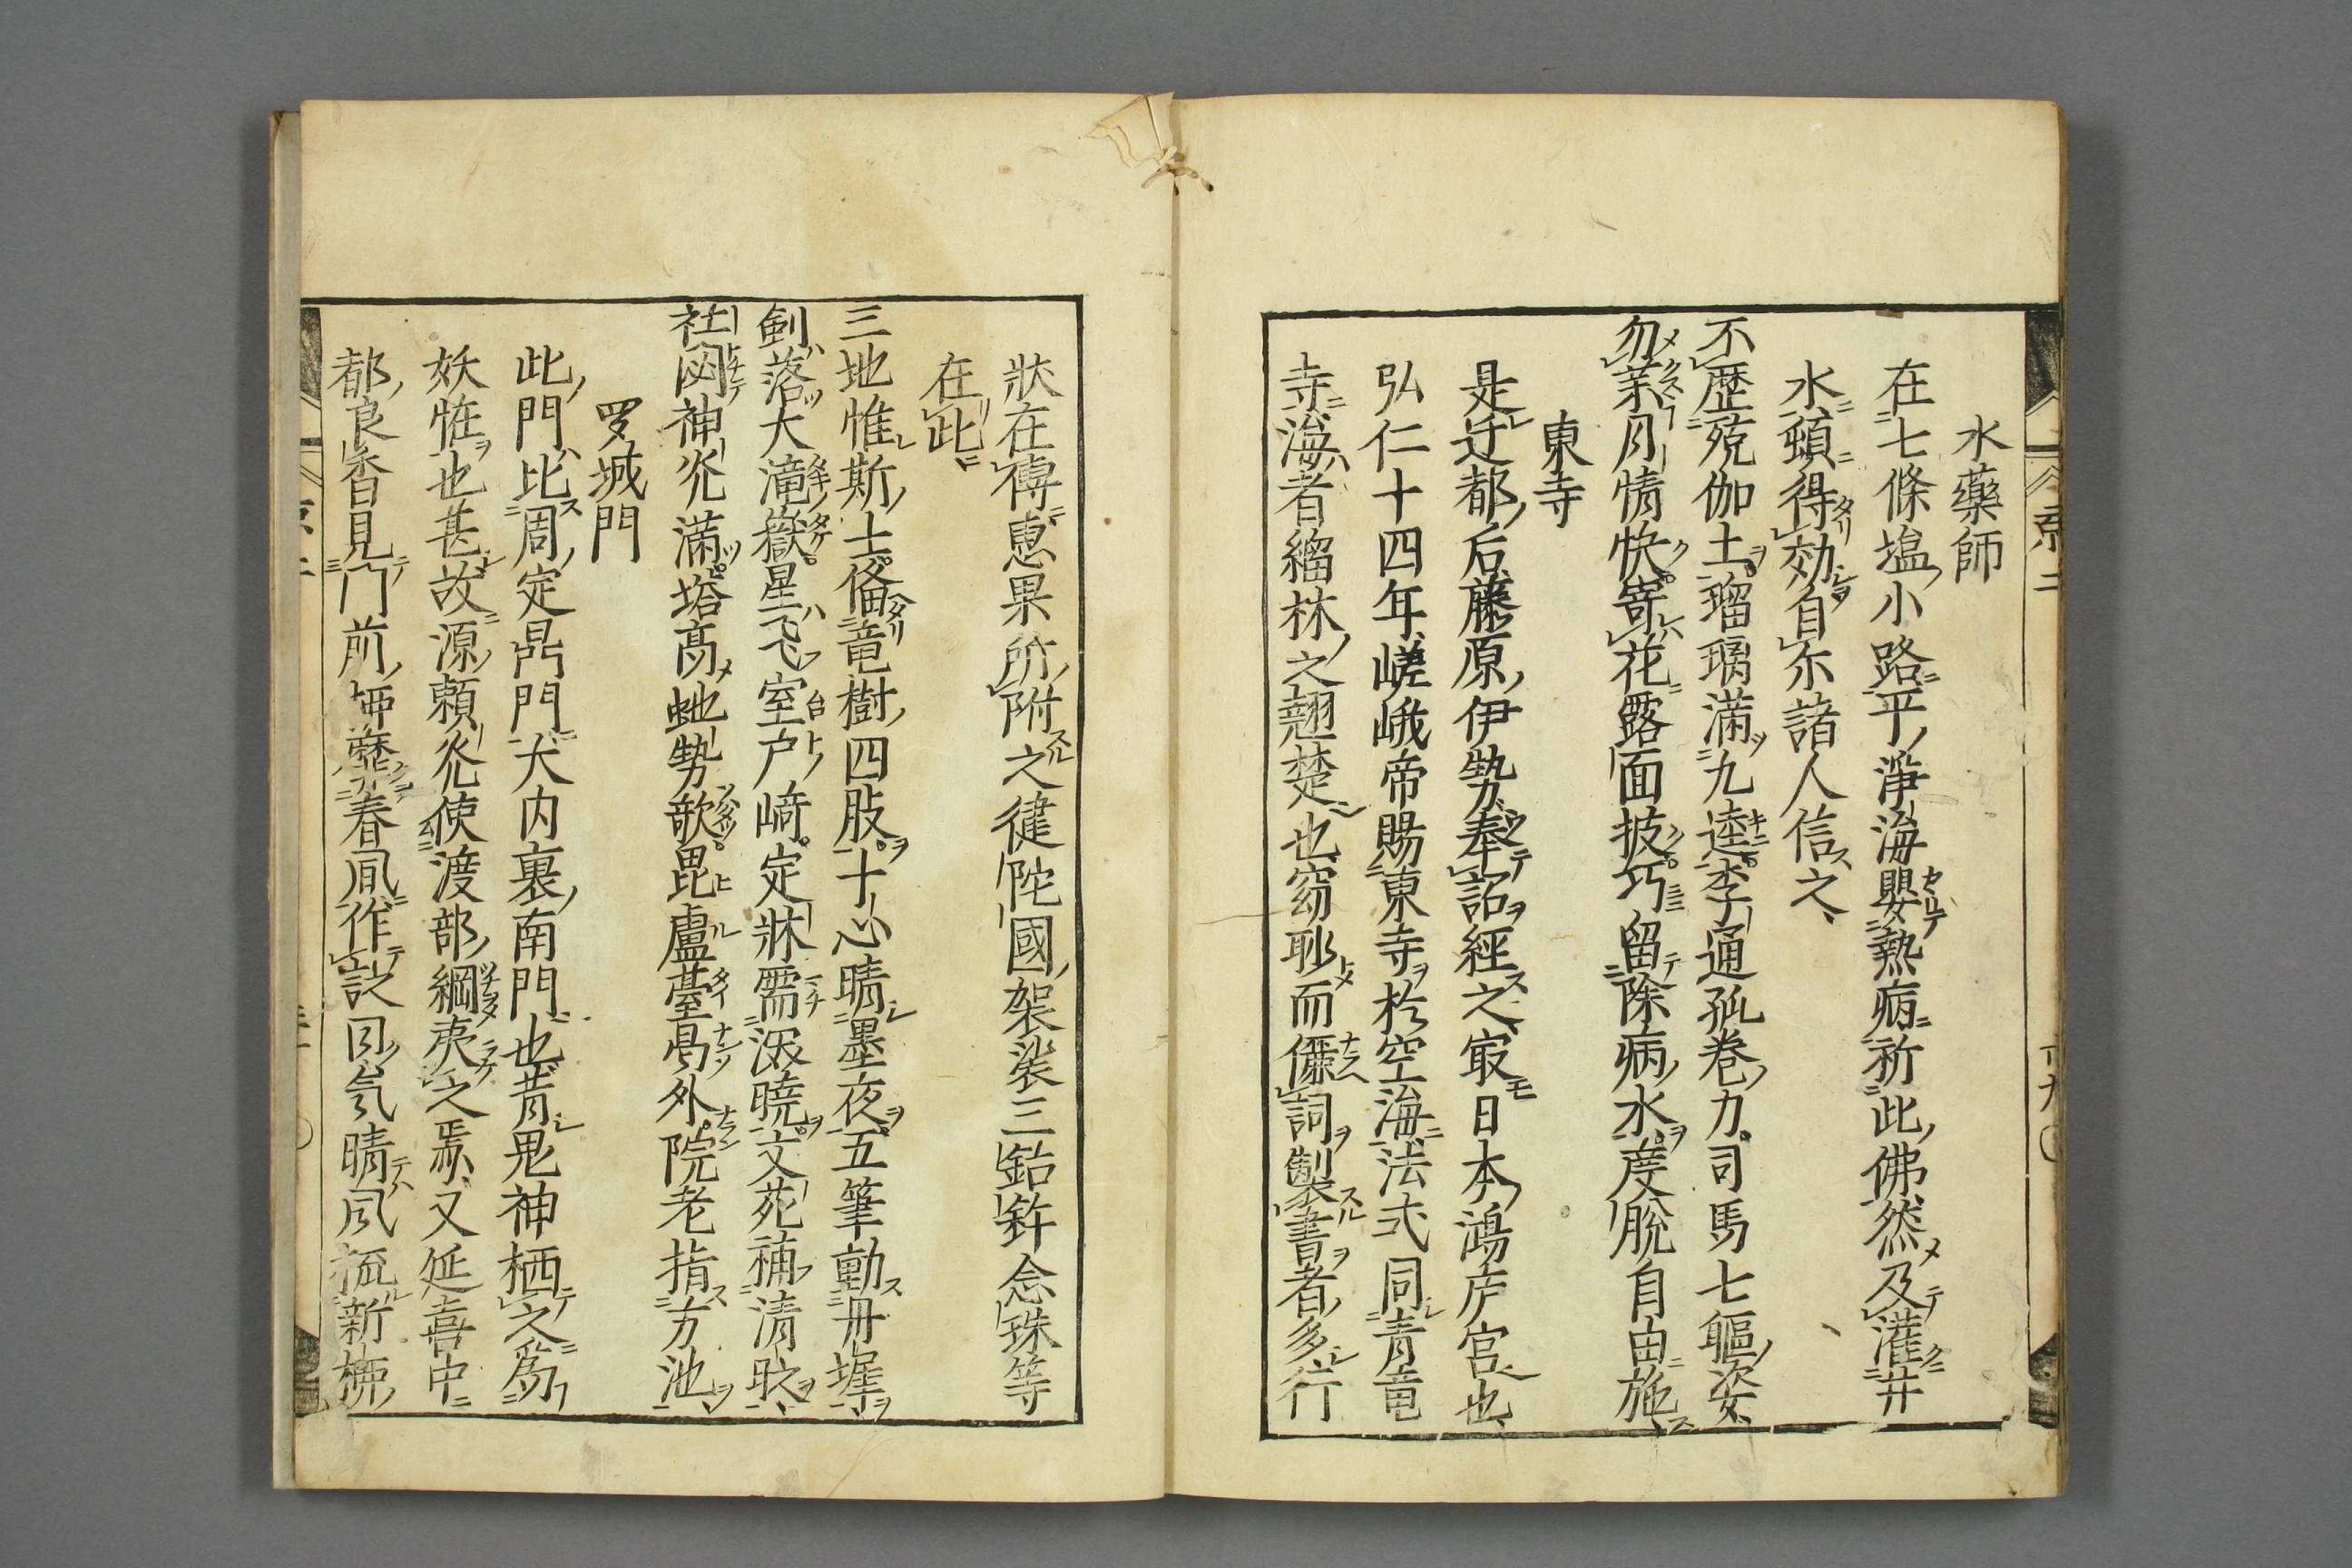 水藥師
在七條塩小路平淨海嬰熱病祈此佛然及灌井
水頓得効自尓諸人信之
不歴殑伽土瑠璃滿九逵李通孤巻力司馬七軀姿
勿業月情快寄花露面披巧留除病水度脫自由施
東寺
是迁都后藤原伊勢奉詔經之冣日本鴻庐宮也
弘仁十四年嵯峨帝賜東寺於空海法式同青竜
寺海者緇林之翹楚也窈耿而儷詞製書者多行
狀在傳惠果所附之犍陀國袈裟三鈷釺念珠等
在此
三地惟斯土偹竜樹四肢十心晴墨夜五筆動丹墀
剣落大滝嶽星飞室户﨑定牀霑渧曉文苑補清
社閟神光滿塔高虵勢欹毘盧薹髙外院老指方池
罗城門
此門比周定鼎門大内裏南門也昔鬼神栖之爲
妖恠也甚故源頼光使渡部綱夷之焉又延喜中
都良香見門前春風作訣曰氣晴風梳新栁